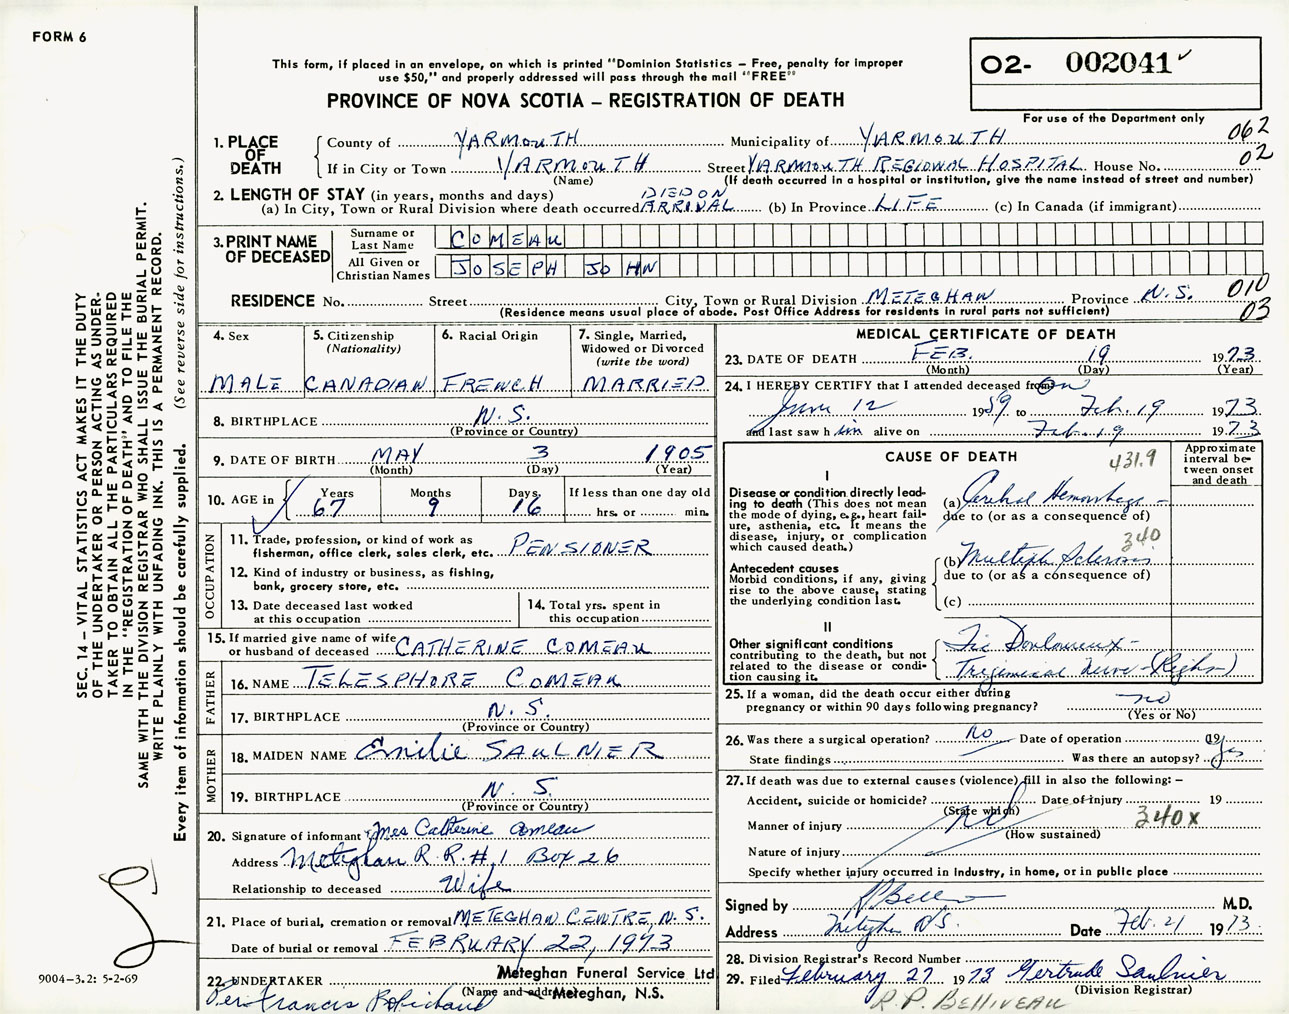 FORM 6
This form, if placed in an envelope, on which is printed "Dominion Statistics – Free, penalty for improper
use $50," and properly addressed will pass through the mail "FREE"
PROVINCE OF NOVA SCOTIA – REGISTRATION OF DEATH
O2- 002041 ✓
For use of the Department only
062
02
1. PLACE OF DEATH
County of YARMOUTH Municipality of YARMOUTH
If in City or Town YARMOUTH Street YARMOUTH REGIONAL HOSPITAL House No.
(Name) (If death occurred in a hospital or institution, give the name instead of street and number)
2. LENGTH OF STAY (in years, months and days)
(a) In City, Town or Rural Division where death occurred DIED ON ARRIVAL (b) In Province LIFE (c) In Canada (if immigrant)
3. PRINT NAME OF DECEASED
Surname or Last Name COMEAU
All Given or Christian Names JOSEPH JOHN
RESIDENCE No. Street City, Town or Rural Division METEGHAN Province N.S.
010
03
(Residence means usual place of abode. Post Office Address for residents in rural parts not sufficient)
4. Sex MALE
5. Citizenship (Nationality) CANADIAN
6. Racial Origin FRENCH
7. Single, Married, Widowed or Divorced (write the word) MARRIED
8. BIRTHPLACE N.S.
(Province or Country)
9. DATE OF BIRTH MAY 3 1905
(Month) (Day) (Year)
10. AGE in Years 67 Months 9 Days 16 If less than one day old hrs. or min.
OCCUPATION
11. Trade, profession, or kind of work as
fisherman, office clerk, sales clerk, etc. PENSIONER
12. Kind of industry or business, as fishing,
bank, grocery store, etc.
13. Date deceased last worked
at this occupation
14. Total yrs. spent in
this occupation
15. If married give name of wife
or husband of deceased CATHERINE COMEAU
FATHER
16. NAME TELESPHORE COMEAU
17. BIRTHPLACE N.S.
(Province or Country)
MOTHER
18. MAIDEN NAME Emilie SAULNIER
19. BIRTHPLACE N.S.
(Province or Country)
20. Signature of informant Mrs Catherine Comeau
Address Meteghan R.R.#1 Box 26
Relationship to deceased Wife
21. Place of burial, cremation or removal METEGHAN CENTRE, N.S.
Date of burial or removal FEBRUARY 22, 1973
22. UNDERTAKER Meteghan Funeral Service Ltd
(Name and address) Meteghan, N.S.
Per Francis Robichaud
MEDICAL CERTIFICATE OF DEATH
23. DATE OF DEATH FEB. 19 1973
(Month) (Day) (Year)
24. I HEREBY CERTIFY that I attended deceased from on
June 12 1959 to Feb. 19 1973
and last saw h im alive on Feb. 19 1973
CAUSE OF DEATH 431.9
Approximate interval between onset and death
I
Disease or condition directly leading to death (This does not mean the mode of dying, e.g., heart failure, asthenia, etc. It means the disease, injury, or complication which caused death.)
(a) Cerebral Hemorrhage –
due to (or as a consequence of)
340
(b) Multiple Sclerosis
due to (or as a consequence of)
Antecedent causes
Morbid conditions, if any, giving rise to the above cause, stating the underlying condition last.
(c)
II
Other significant conditions
contributing to the death, but not related to the disease or condition causing it.
Tic Douloureux –
Trigeminal Nerve – (Right)
25. If a woman, did the death occur either during
pregnancy or within 90 days following pregnancy? no
(Yes or No)
26. Was there a surgical operation? No Date of operation 19
State findings Was there an autopsy? yes
27. If death was due to external causes (violence) fill in also the following: –
Accident, suicide or homicide? Date of injury 19
(State which)
Manner of injury 340x
(How sustained)
Nature of injury
Specify whether injury occurred in Industry, in home, or in public place
Signed by RP Belliveau M.D.
Address Meteghan N.S. Date Feb. 21 1973
28. Division Registrar's Record Number
29. Filed February 27 1973 Gertrude Saulnier
(Division Registrar)
R.P. BELLIVEAU
SEC. 14 – VITAL STATISTICS ACT MAKES IT THE DUTY
OF THE UNDERTAKER OR PERSON ACTING AS UNDER-
TAKER TO OBTAIN ALL THE PARTICULARS REQUIRED
IN THE "REGISTRATION OF DEATH" AND TO FILE THE
SAME WITH THE DIVISION REGISTRAR WHO SHALL ISSUE THE BURIAL PERMIT.
WRITE PLAINLY WITH UNFADING INK. THIS IS A PERMANENT RECORD.
Every item of information should be carefully supplied. (See reverse side for instructions.)
9004–3.2: 5-2-69